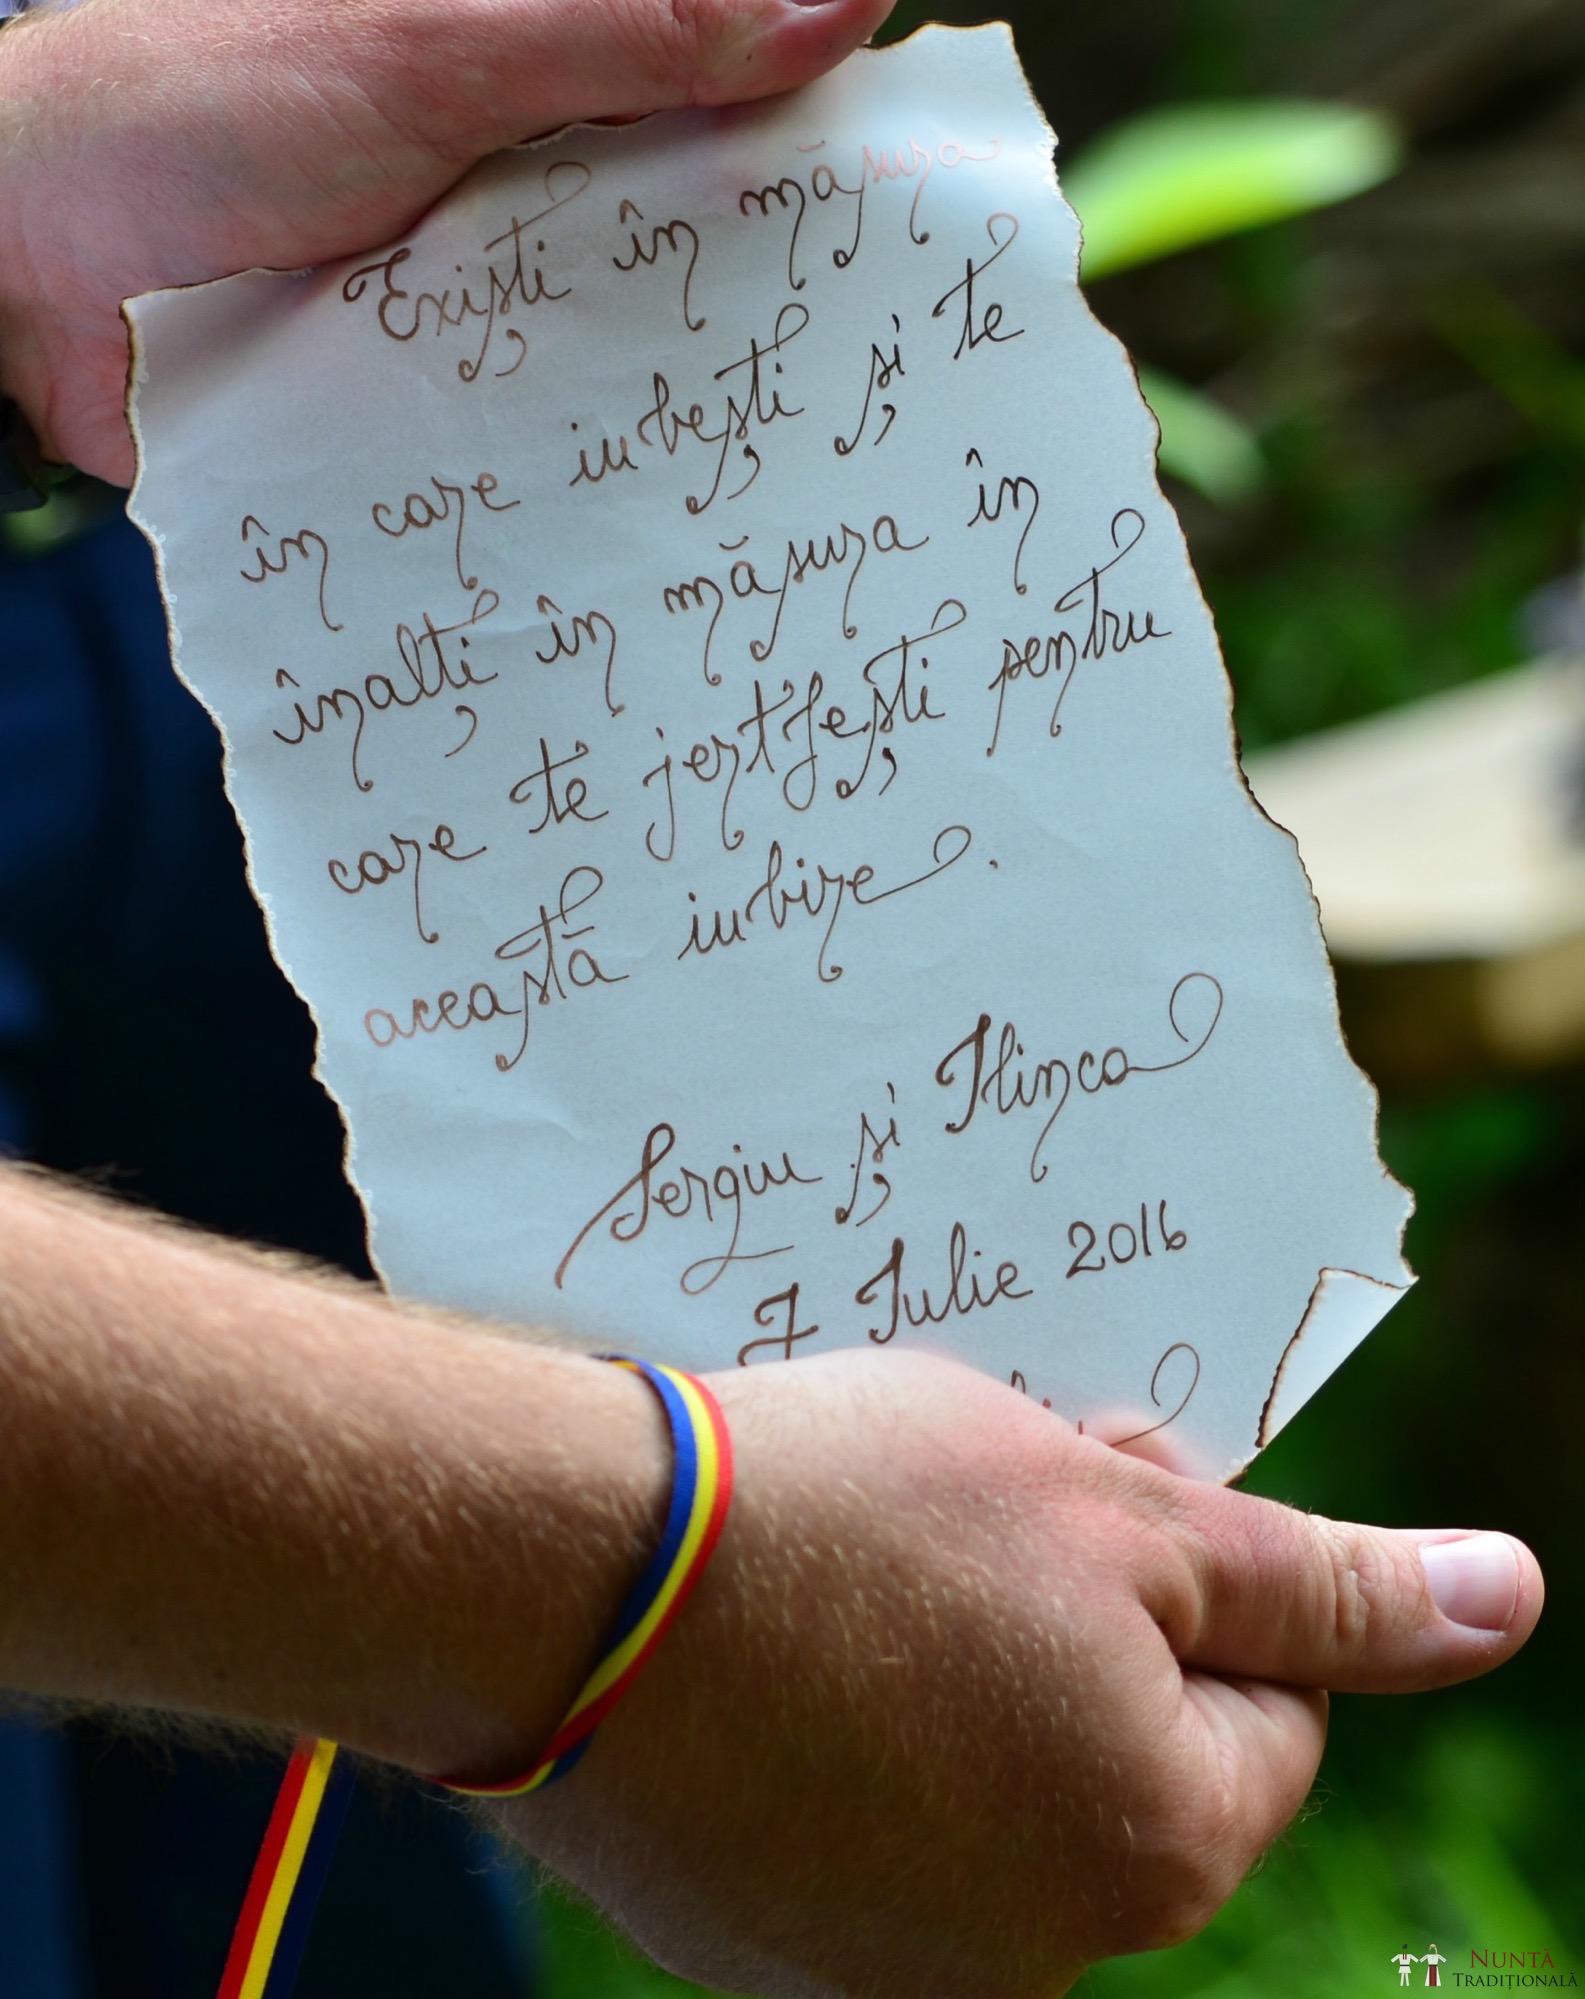 Existi în măsura
în care iubești și te
înalți în măsura în
care te jertfești pentru
această iubire.
Sergiu și Ilinca
7 Iulie 2016
NUNTĂ
TRADIȚIONALĂ